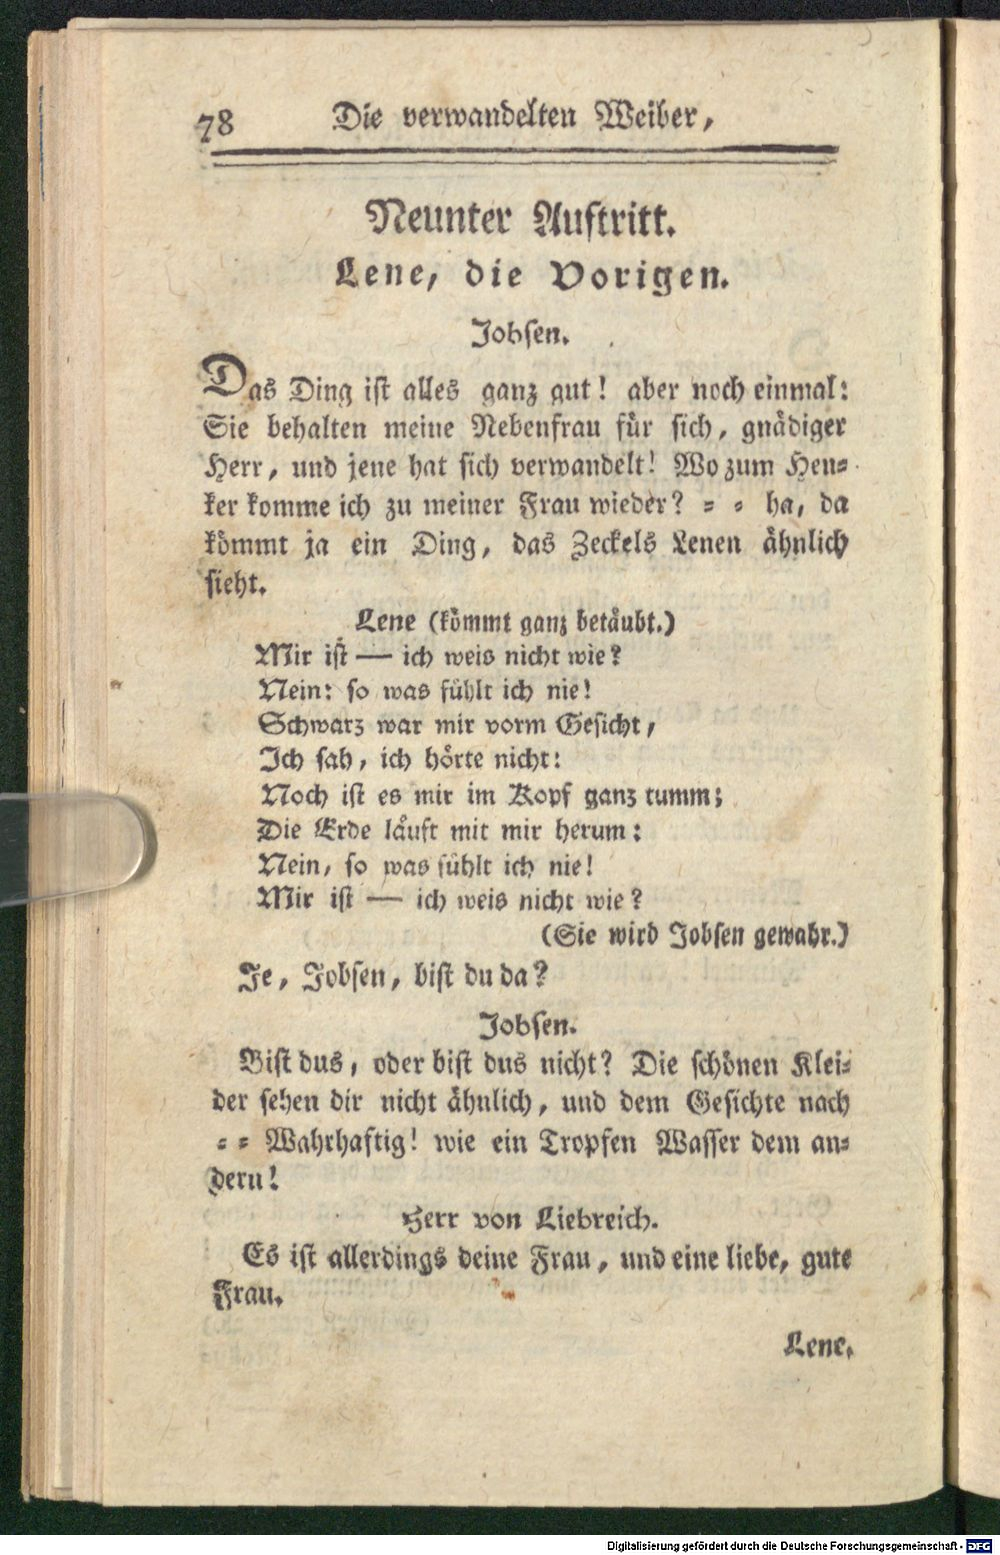 78 Die verwandelten Weiber,
Neunter Auftritt.
Lene, die Vorigen.
Jobsen.
Das Ding ist alles ganz gut! aber noch einmal:
Sie behalten meine Nebenfrau für sich, gnädiger
Herr, und jene hat sich verwandelt! Wo zum Hen⸗
ker komme ich zu meiner Frau wieder? ⸗ ⸗ ha, da
kömmt ja ein Ding, das Zeckels Lenen ähnlich
sieht.
Lene (kömmt ganz betäubt.)
Mir ist — ich weis nicht wie?
Nein: so was fühlt ich nie!
Schwarz war mir vorm Gesicht,
Ich sah, ich hörte nicht:
Noch ist es mir im Kopf ganz tumm;
Die Erde läuft mit mir herum:
Nein, so was fühlt ich nie!
Mir ist — ich weis nicht wie?
(Sie wird Jobsen gewahr.)
Je, Jobsen, bist du da?
Jobsen.
Bist dus, oder bist dus nicht? Die schönen Klei⸗
der sehen dir nicht ähnlich, und dem Gesichte nach
⸗ ⸗ Wahrhaftig! wie ein Tropfen Wasser dem an⸗
dern!
Herr von Liebreich.
Es ist allerdings deine Frau, und eine liebe, gute
Frau.
Lene.
Digitalisierung gefördert durch die Deutsche Forschungsgemeinschaft - DFG